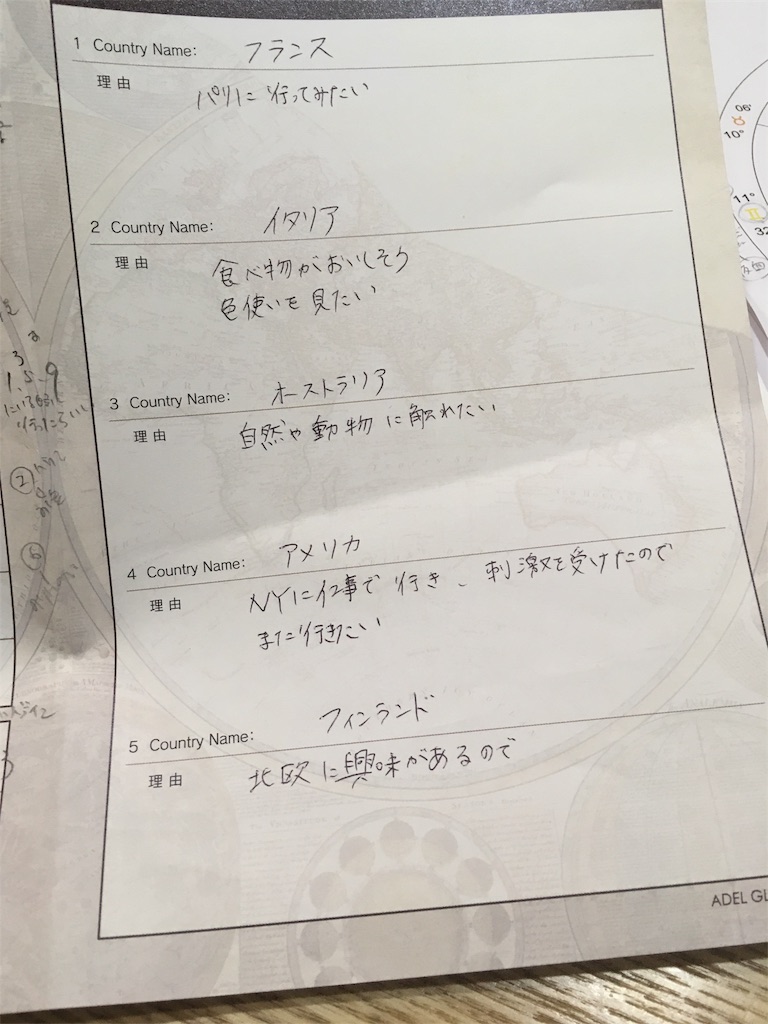 1 Country Name: フランス
理由
パリに行ってみたい
2 Country Name: イタリア
理由
食べ物がおいしそう
色使いを見たい
3 Country Name: オーストラリア
理由
自然や動物に触れたい
4 Country Name: アメリカ
理由
NYに仕事で行き、刺激を受けたので
また行きたい
5 Country Name: フィンランド
理由
北欧に興味があるので
ADEL GL
06'
10°
11°
32
3
1.5-9
②